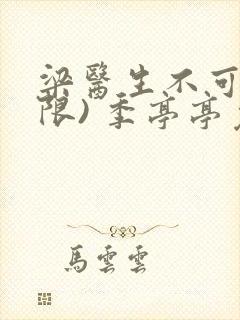 梁醫生不可
限) 季亭亭
馬雲雲